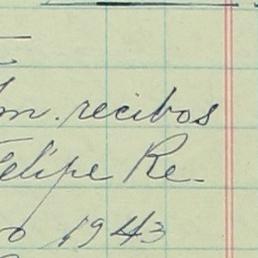 m. recibos
Felipe Re-
o 1943